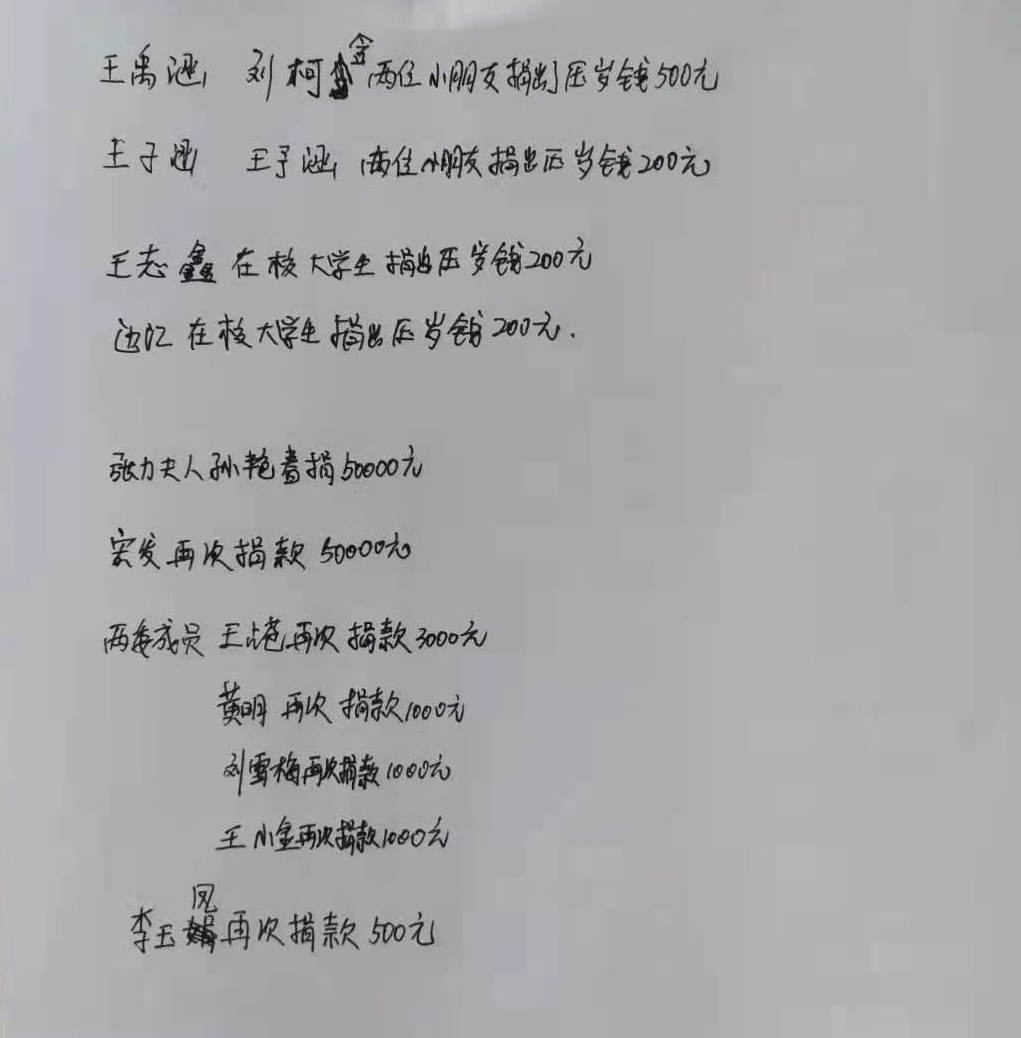 王禹涵 刘柯金两位小朋友捐出压岁钱500元
王子涵 王予涵 两位小朋友捐出压岁钱200元
王志鑫在校大学生捐出压岁钱200元
边忆在校大学生捐出压岁钱200元.
张力夫人孙艳春捐50000元
宏发再次捐款50000元
两委成员 王占苍再次捐款3000元
黄明 再次捐款1000元
刘雪梅再次捐款1000元
王小金再次捐款1000元
李玉凤再次捐款500元